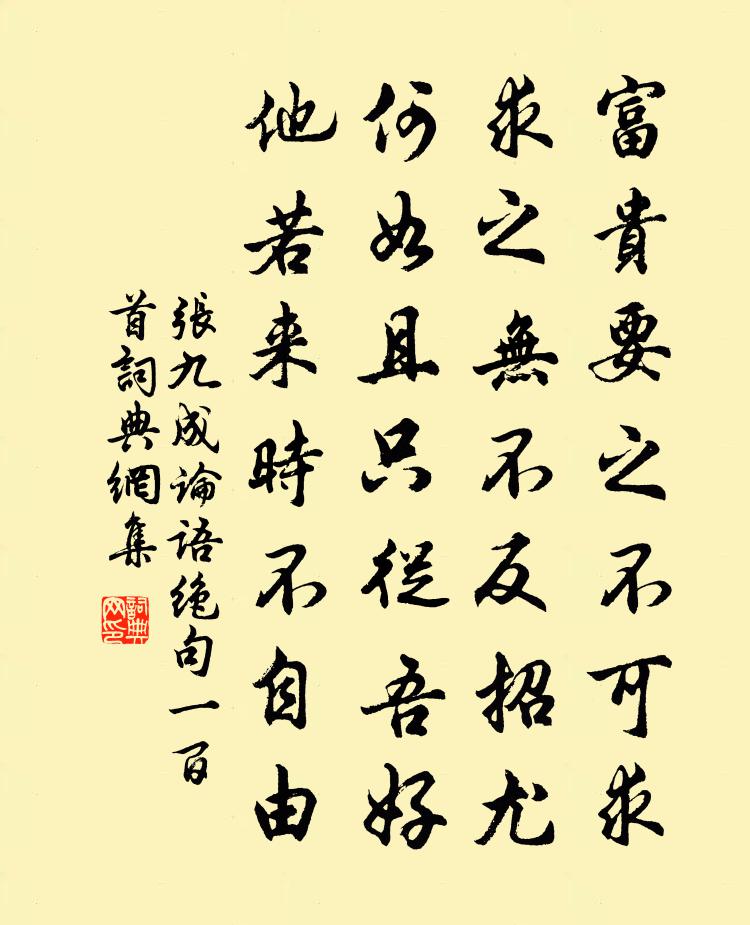 富貴要之不可求
求之無不反招尤
何如且只從吾好
他若来時不自由
張九成论语绝句一百
首詞典網集
詞典网印